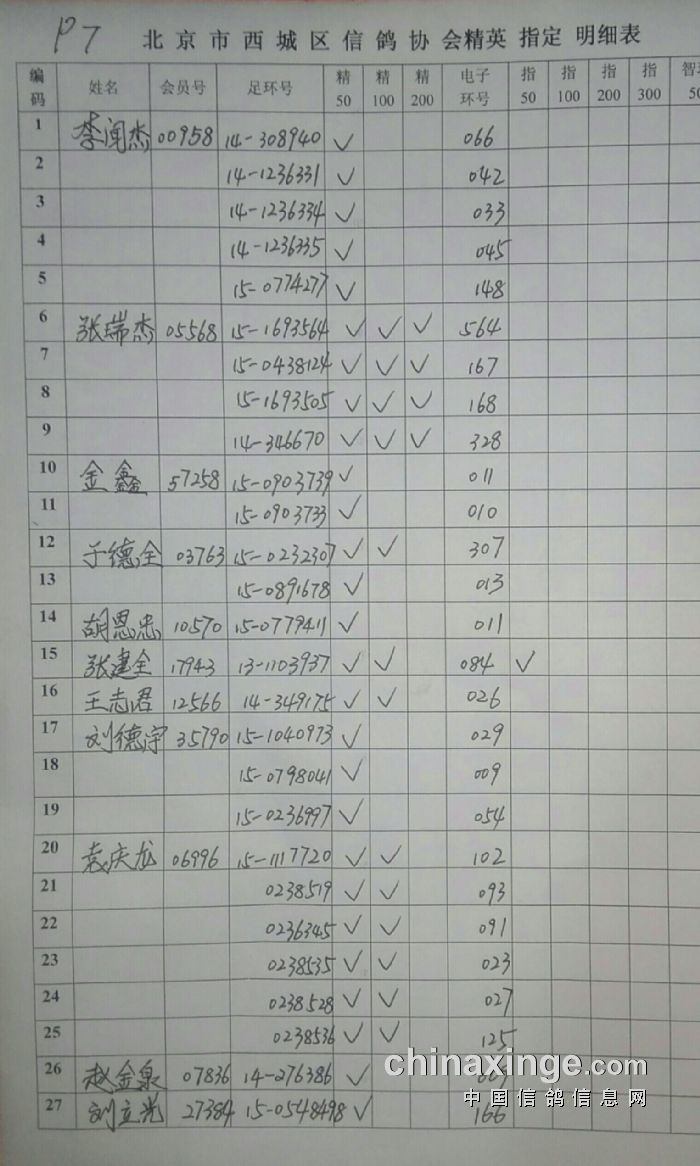 P7 北京市西城区信鸽协会精英 指定 明细表
编码 姓名 会员号 足环号 精50 精100 精200 电子环号 指50 指100 指200 指300 50
1 李闻杰 00958 14-308940 ✓ 066
2 14-1236331 ✓ 042
3 14-1236334 ✓ 033
4 14-1236335 ✓ 045
5 15-0774277 ✓ 148
6 张瑞杰 05568 15-1693564 ✓ ✓ ✓ 564
7 15-0438124 ✓ ✓ ✓ 167
8 15-1693505 ✓ ✓ ✓ 168
9 14-346670 ✓ ✓ ✓ 328
10 金鑫 57258 15-0903739 ✓ 011
11 15-0903733 ✓ 010
12 于德全 03763 15-0232307 ✓ ✓ 307
13 15-0891678 ✓ 013
14 胡恩忠 10570 15-0779411 ✓ 011
15 张建全 17943 13-1103937 ✓ ✓ 084 ✓
16 王志君 12566 14-349175 ✓ ✓ 026
17 刘德宇 35790 15-1040973 ✓ 029
18 15-0798041 ✓ 009
19 15-0236997 ✓ 054
20 袁庆龙 06996 15-1117720 ✓ ✓ 102
21 0238519 ✓ ✓ 093
22 0236345 ✓ ✓ 091
23 0238535 ✓ ✓ 023
24 0238528 ✓ ✓ 027
25 0238536 ✓ ✓ 125
26 赵金泉 07836 14-276386 ✓
27 刘立光 27384 15-0548498 ✓ 166
chinaxinge.com
中国信鸽信息网